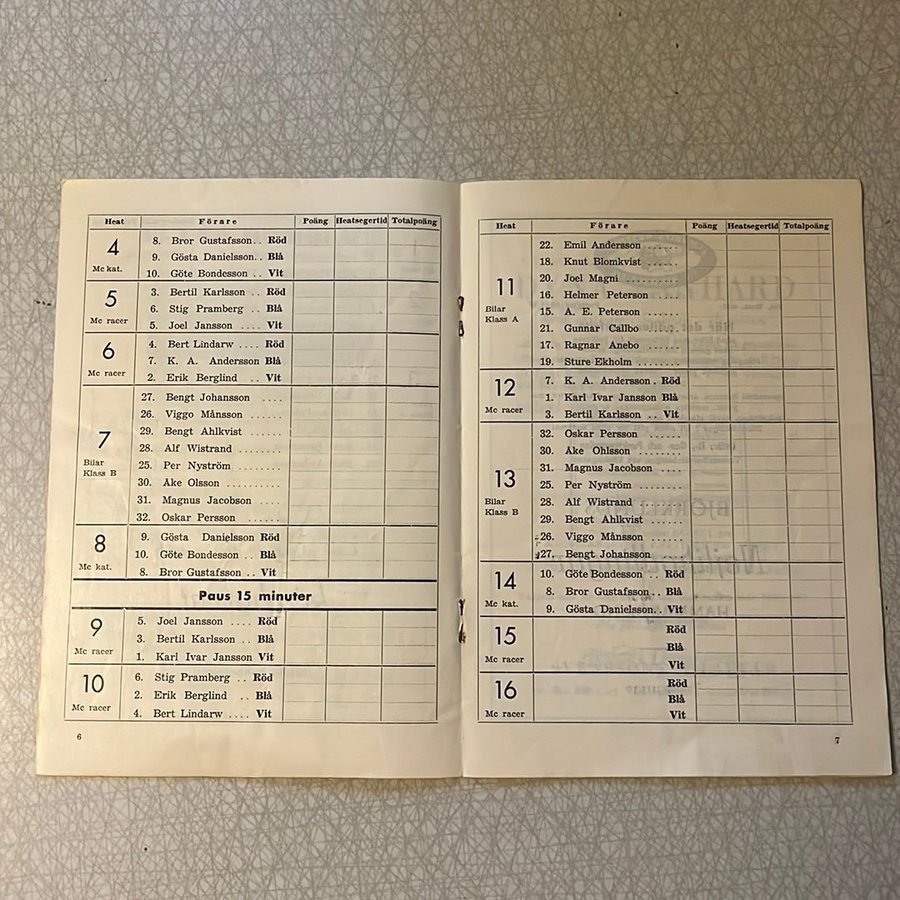 Heat Förare Poäng Heatsegertid Totalpoäng
4 Mc kat.
8. Bror Gustafsson.. Röd
9. Gösta Danielsson.. Blå
10. Göte Bondesson .. Vit
5 Mc racer
3. Bertil Karlsson .. Röd
6. Stig Pramberg .. Blå
5. Joel Jansson .... Vit
6 Mc racer
4. Bert Lindarw .... Röd
7. K. A. Andersson Blå
2. Erik Berglind .. Vit
7 Bilar Klass B
27. Bengt Johansson ....
26. Viggo Månsson ......
29. Bengt Ahlkvist ......
28. Alf Wistrand ........
25. Per Nyström ........
30. Åke Olsson .........
31. Magnus Jacobson ....
32. Oskar Persson ......
8 Mc kat.
9. Gösta Danielsson Röd
10. Göte Bondesson .. Blå
8. Bror Gustafsson .. Vit
Paus 15 minuter
9 Mc racer
5. Joel Jansson .... Röd
3. Bertil Karlsson .. Blå
1. Karl Ivar Jansson Vit
10 Mc racer
6. Stig Pramberg .. Röd
2. Erik Berglind .. Blå
4. Bert Lindarw .... Vit
6
Heat Förare Poäng Heatsegertid Totalpoäng
11 Bilar Klass A
22. Emil Andersson ......
18. Knut Blomkvist ......
20. Joel Magni ..........
16. Helmer Peterson .....
15. A. E. Peterson ......
21. Gunnar Callbo ......
17. Ragnar Anebo ......
19. Sture Ekholm ........
12 Mc racer
7. K. A. Andersson . Röd
1. Karl Ivar Jansson Blå
3. Bertil Karlsson .. Vit
13 Bilar Klass B
32. Oskar Persson ......
30. Åke Ohlsson ........
31. Magnus Jacobson ....
25. Per Nyström ........
28. Alf Wistrand ........
29. Bengt Ahlkvist ......
26. Viggo Månsson ......
27. Bengt Johansson ....
14 Mc kat.
10. Göte Bondesson .. Röd
8. Bror Gustafsson .. Blå
9. Gösta Danielsson.. Vit
15 Mc racer
Röd
Blå
Vit
16 Mc racer
Röd
Blå
Vit
7